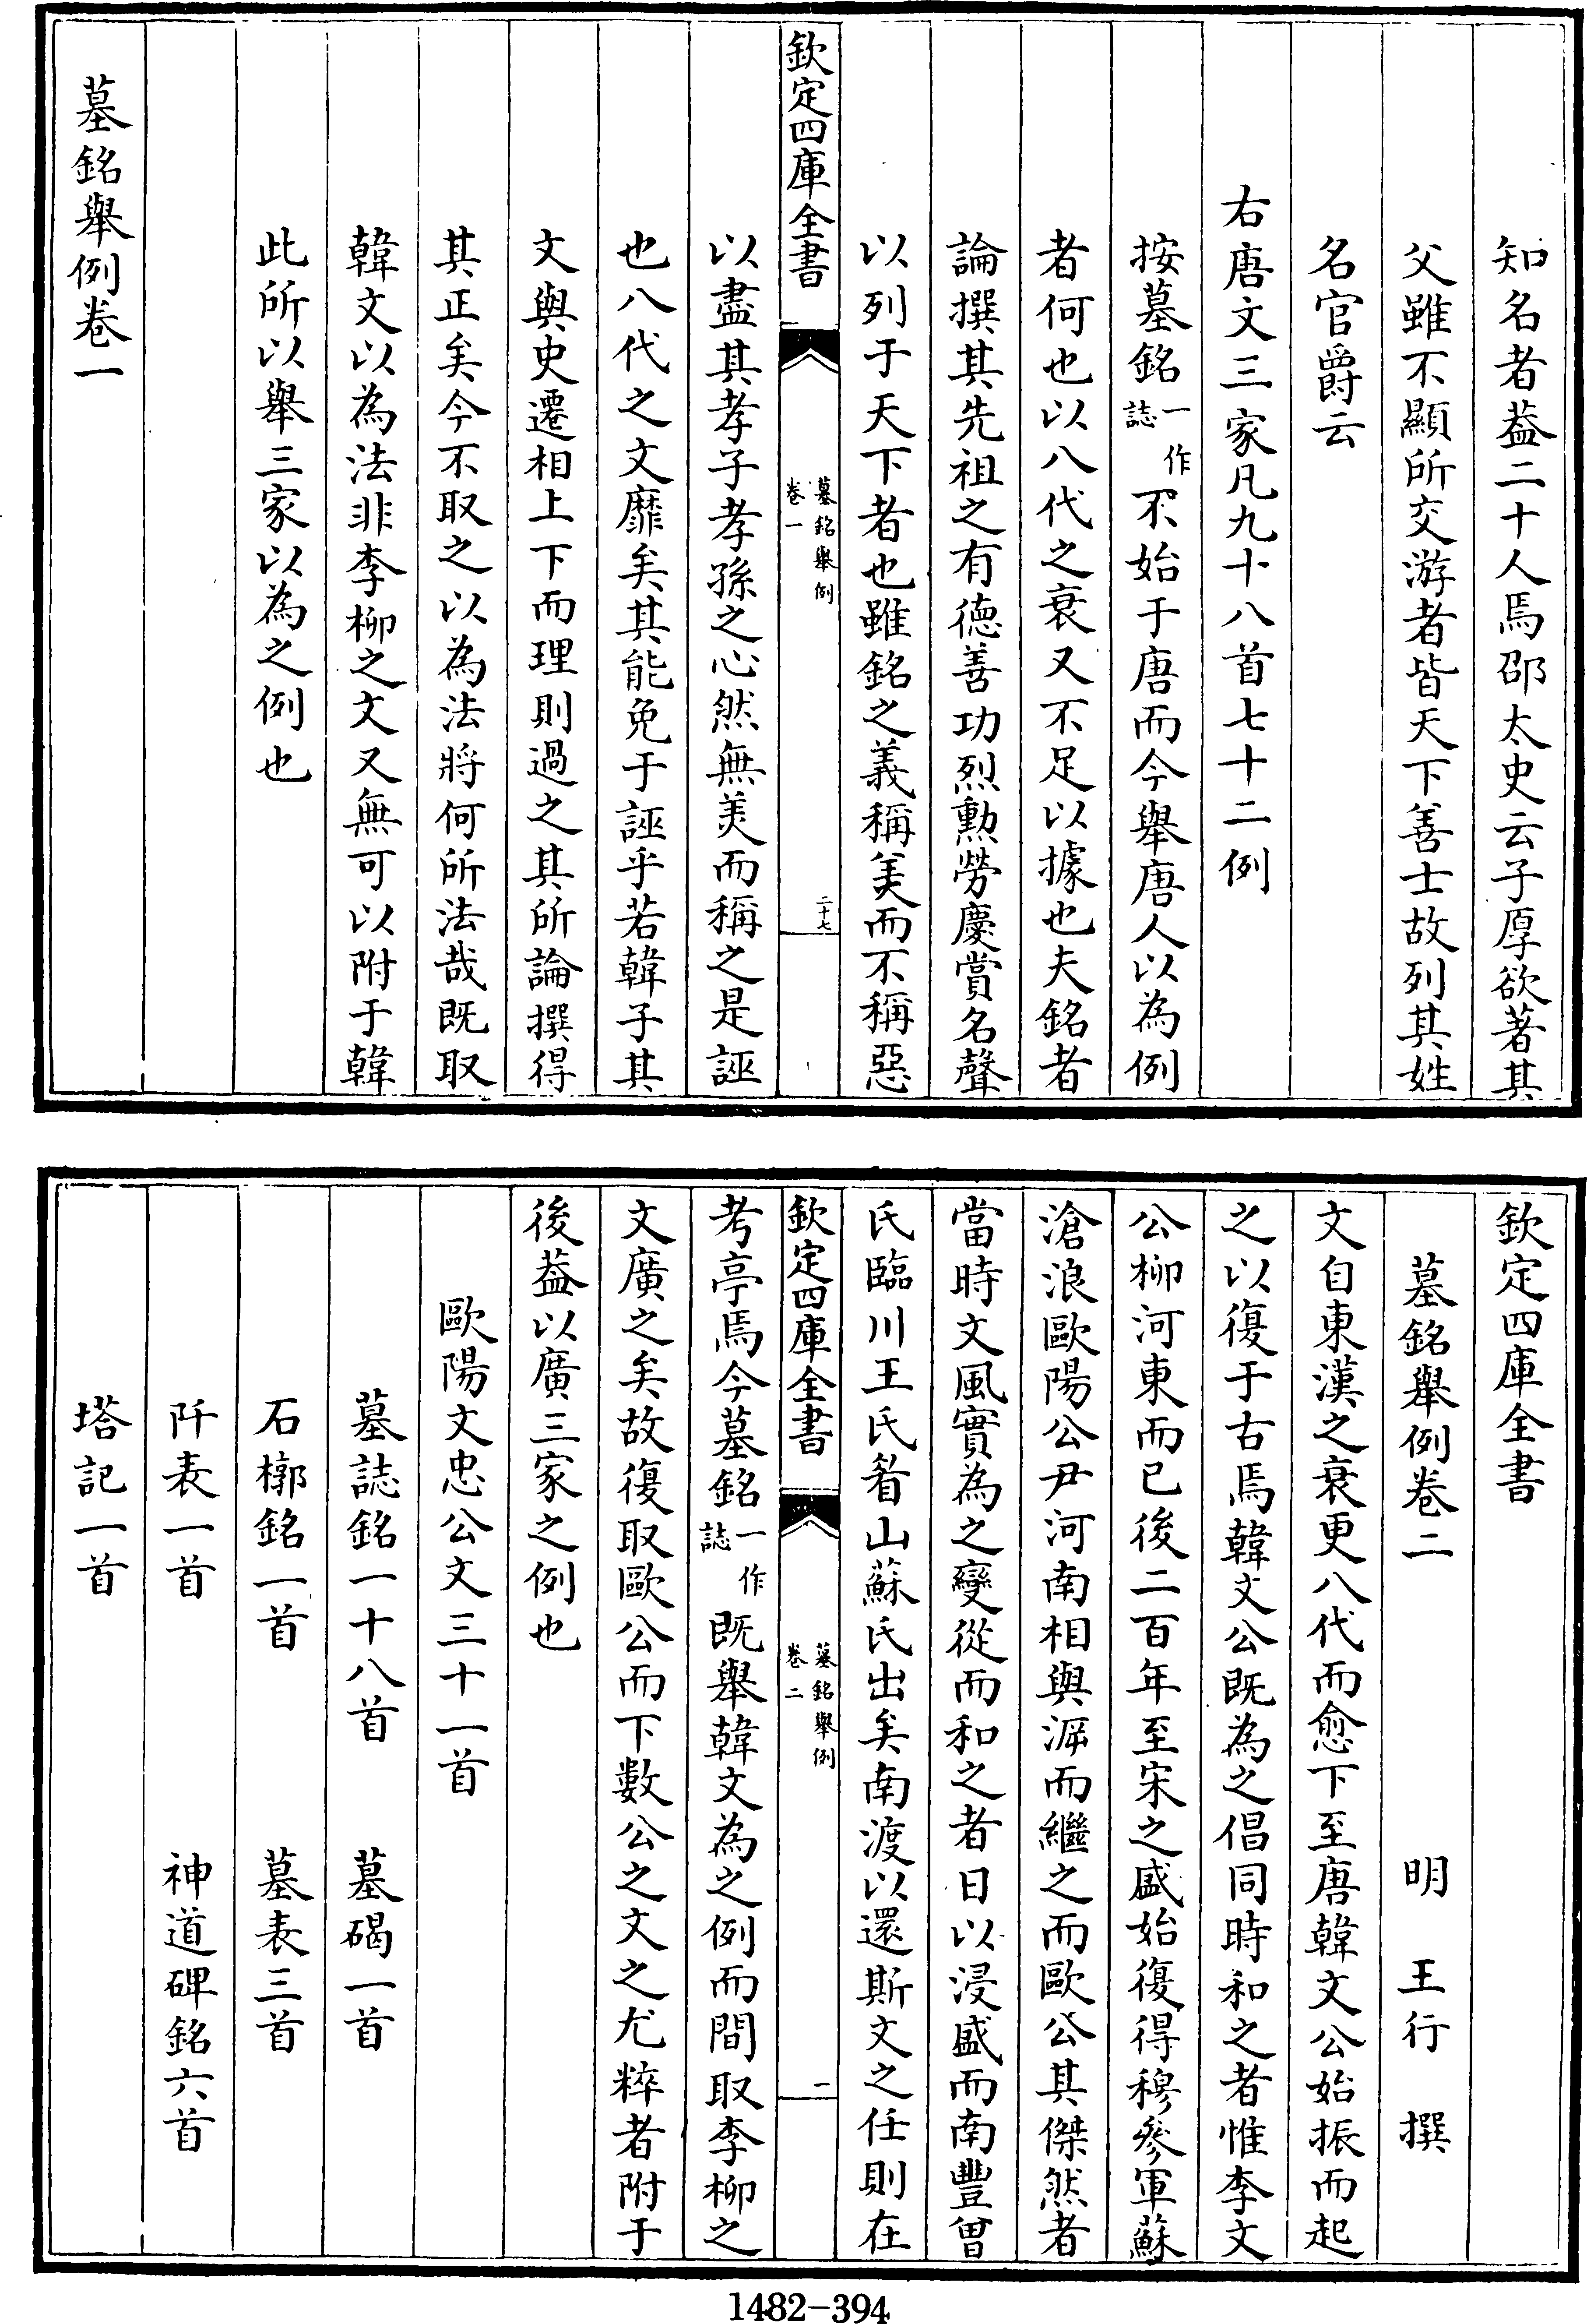 知名者葢二十人焉邵太史云子厚欲著其
父雖不顯所交游者皆天下善士故列其姓
名官爵云
右唐文三家凡九十八首七十二例
按墓銘一作誌不始于唐而今舉唐人以為例
者何也以八代之衰又不足以據也夫銘者
論撰其先祖之有德善功烈勲勞慶賞名聲
以列于天下者也雖銘之義稱美而不稱惡
欽定四庫全書
墓銘舉例
卷一
二十七
以盡其孝子孝孫之心然無美而稱之是誣
也八代之文靡矣其能免于誣乎若韓子其
文與史遷相上下而理則過之其所論撰得
其正矣今不取之以為法將何所法哉既取
韓文以為法非李柳之文又無可以附于韓
此所以舉三家以為之例也
墓銘舉例卷一
欽定四庫全書
墓銘舉例卷二
明 王行 撰
文自東漢之衰更八代而愈下至唐韓文公始振而起
之以復于古焉韓文公既為之倡同時和之者惟李文
公柳河東而已後二百年至宋之盛始復得穆參軍蘇
滄浪歐陽公尹河南相與溽而繼之而歐公其傑然者
當時文風實為之變從而和之者日以浸盛而南豐曾
氏臨川王氏眉山蘇氏出矣南渡以還斯文之任則在
欽定四庫全書
墓銘舉例
卷二
一
考亭焉今墓銘一作誌既舉韓文為之例而間取李柳之
文廣之矣故復取歐公而下數公之文之尤粹者附于
後葢以廣三家之例也
歐陽文忠公文三十一首
墓誌銘一十八首 墓碣一首
石槨銘一首 墓表三首
阡表一首 神道碑銘六首
塔記一首
1482-394